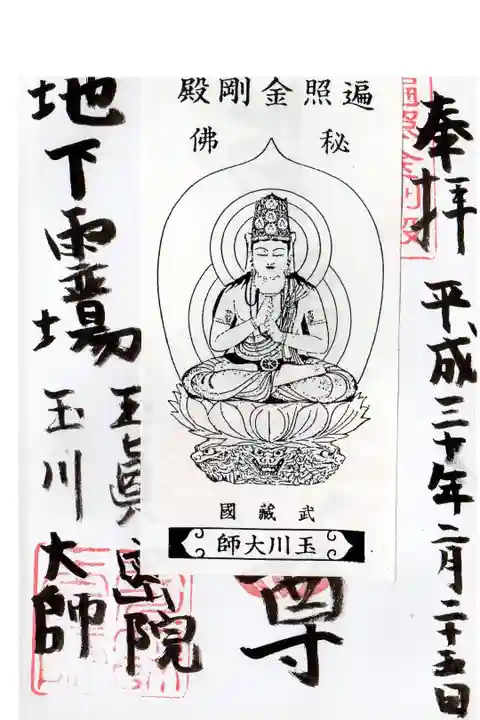 奉拝
平成三十年二月二十五日
遍照金剛殿
遍照金剛殿
秘佛
武藏國
玉川大師
尊
玉眞島院
地下霊場
玉川大師